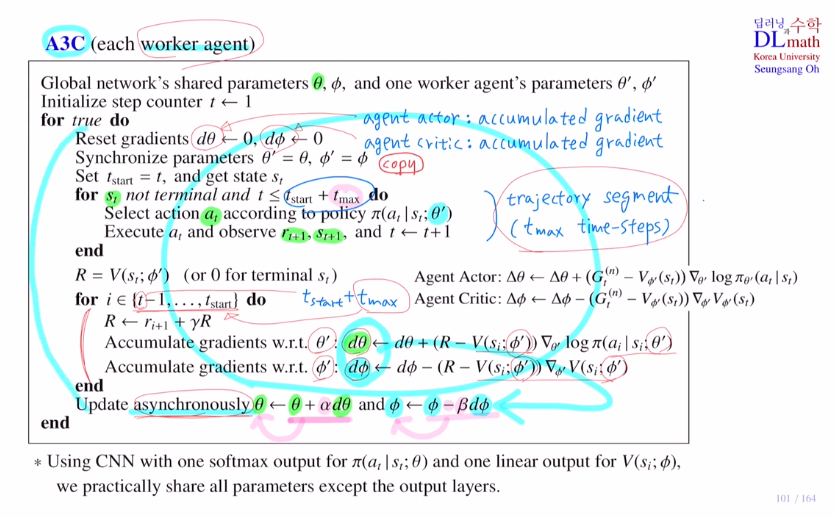 A3C (each worker agent)
딥러닝과 수학
DL math
Korea University
Seungsang Oh
Global network's shared parameters θ, ϕ, and one worker agent's parameters θ′, ϕ′
Initialize step counter t ← 1
for true do
agent actor : accumulated gradient
Reset gradients dθ ← 0, dϕ ← 0
agent critic : accumulated gradient
Synchronize parameters θ′ = θ, ϕ′ = ϕ
copy
Set t_start = t, and get state s_t
for s_t not terminal and t ≤ t_start + t_max do
trajectory segment
Select action a_t according to policy π(a_t | s_t; θ′)
(t_max time-steps)
Execute a_t and observe r_{t+1}, s_{t+1}, and t ← t+1
end
R = V(s_t; ϕ′) (or 0 for terminal s_t)
Agent Actor: Δθ ← Δθ + (G_t^{(n)} − V_{ϕ′}(s_t)) ∇_{θ′} log π_{θ′}(a_t | s_t)
for i ∈ {t−1, . . . , t_start} do
t_start + t_max
Agent Critic: Δϕ ← Δϕ − (G_t^{(n)} − V_{ϕ′}(s_t)) ∇_{ϕ′} V_{ϕ′}(s_t)
R ← r_{i+1} + γR
Accumulate gradients w.r.t. θ′ : dθ ← dθ + (R − V(s_i; ϕ′)) ∇_{θ′} log π(a_i | s_i; θ′)
Accumulate gradients w.r.t. ϕ′ : dϕ ← dϕ − (R − V(s_i; ϕ′)) ∇_{ϕ′} V(s_i; ϕ′)
end
Update asynchronously θ ← θ + αdθ and ϕ ← ϕ − βdϕ
end
* Using CNN with one softmax output for π(a_t | s_t; θ) and one linear output for V(s_i; ϕ),
we practically share all parameters except the output layers.
101 / 164